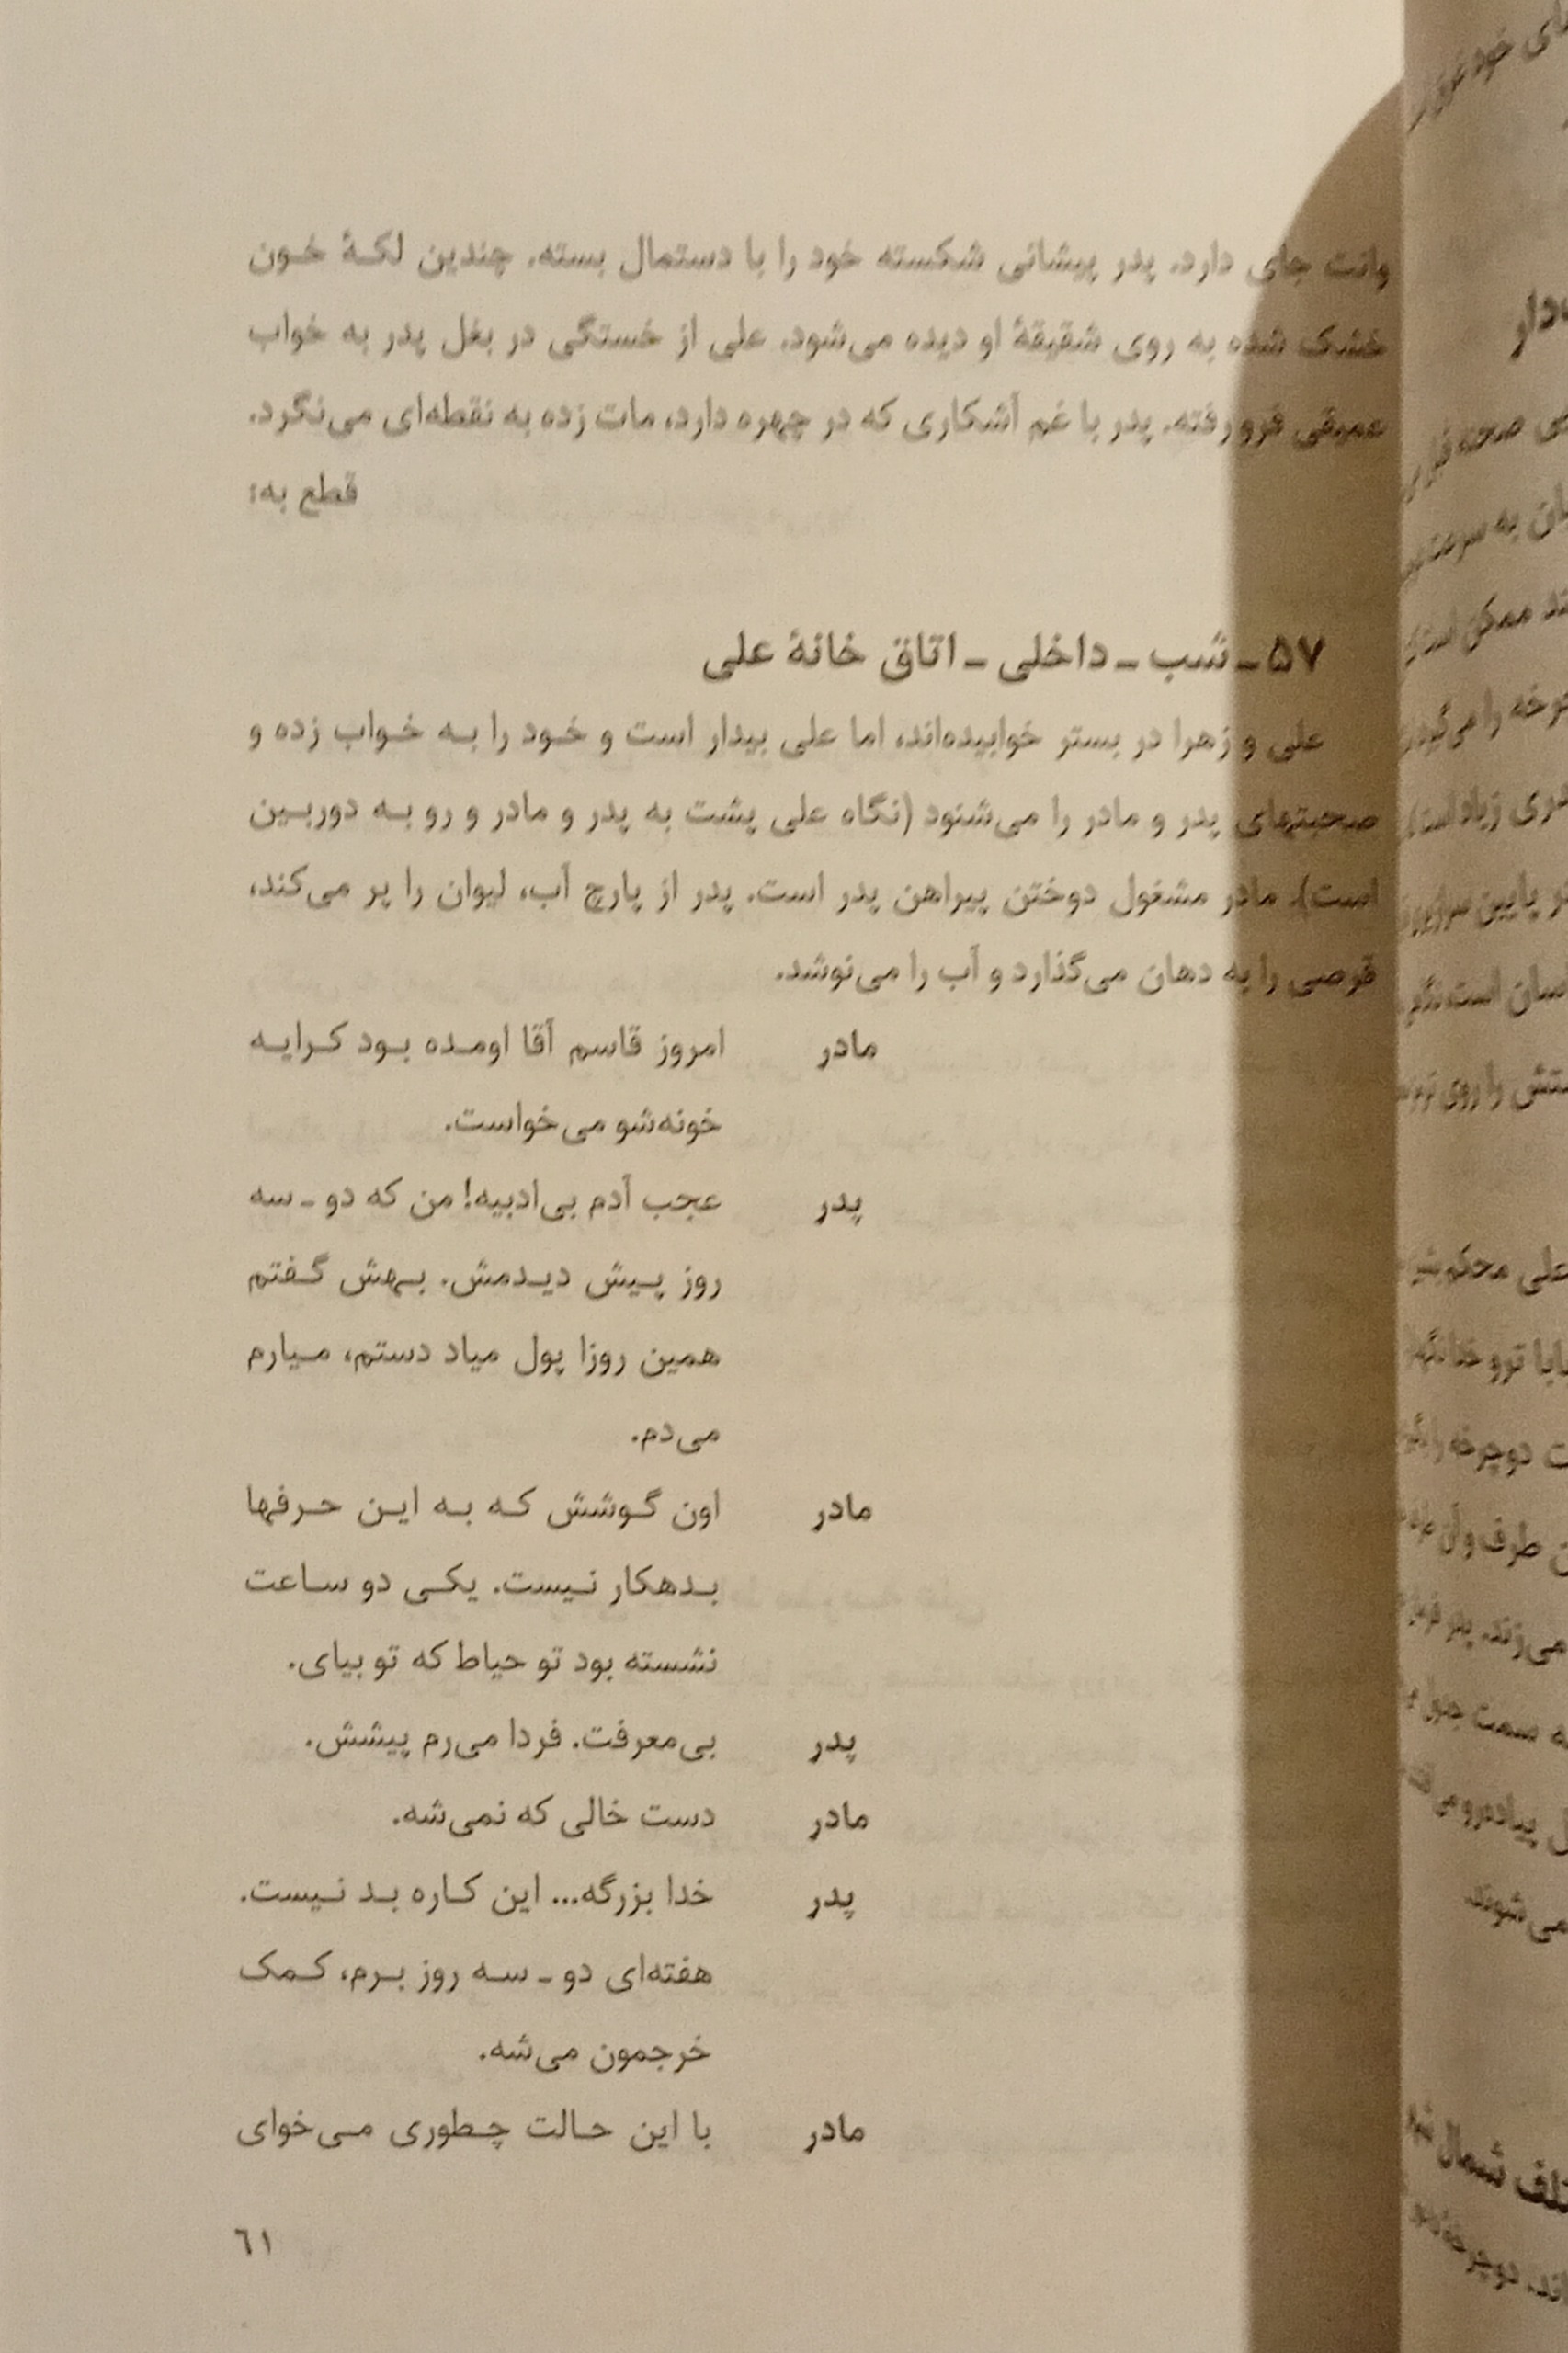 وانت جای دارد. پدر پیشانی شکسته خود را با دستمال بسته. چندین لکهٔ خون
خشک شده به روی شقیقهٔ او دیده می‌شود. علی از خستگی در بغل پدر به خواب
عمیقی فرو رفته. پدر با غم آشکاری که در چهره دارد، مات زده به نقطه‌ای می‌نگرد.
قطع به:
۵۷ ـ شب ـ داخلی ـ اتاق خانهٔ علی
علی و زهرا در بستر خوابیده‌اند، اما علی بیدار است و خود را به خواب زده و
صحبتهای پدر و مادر را می‌شنود (نگاه علی پشت به پدر و مادر و رو به دوربین
است). مادر مشغول دوختن پیراهن پدر است. پدر از پارچ آب، لیوان را پر می‌کند،
قرصی را به دهان می‌گذارد و آب را می‌نوشد.
مادر امروز قاسم آقا اومده بود کرایه
خونه‌شو می‌خواست.
پدر عجب آدم بی‌ادبیه! من که دو ـ سه
روز پیش دیدمش. بهش گفتم
همین روزا پول میاد دستم، میارم
می‌دم.
مادر اون گوشش که به این حرفها
بدهکار نیست. یکی دو ساعت
نشسته بود تو حیاط که تو بیای.
پدر بی‌معرفت. فردا می‌رم پیشش.
مادر دست خالی که نمی‌شه.
پدر خدا بزرگه... این کاره بد نیست.
هفته‌ای دو ـ سه روز برم، کمک
خرجمون می‌شه.
مادر با این حالت چطوری می‌خوای
٦١
علی محکم
دوچرخه
طرف و آن
می‌زند. پدر
سمت
می‌شوند.
شمال